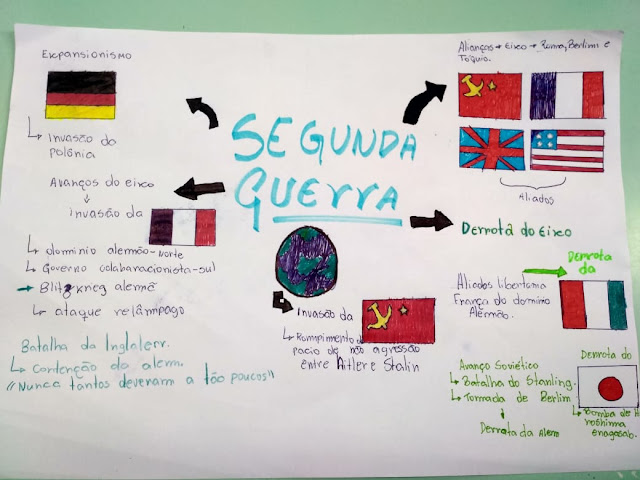 SEGUNDA
GUERRA
Expansionismo
Invasão do
polônia
Avanços do eixo
Invasão da
dominio alemão-norte
Governo colabaracionista-sul
Blitzkneg alemã
ataque relâmpago
Batalha da Inglaterr.
Contenção da alem.
"Nunca tantos deveram a tão poucos"
Invasão da
Rompimento do
pacio de não agressão
entre Hitler e Stalin
Alianços → Eixo → Roma, Berlim e
Tóquio.
Aliados
Derrota do Eixo
Derrota
da
Aliados libertama
França do dominio
Alemão.
Avanço Soviético
Batalha do Stanling.
Tomada de Berlim
Derrota da Alem
Derrota do
Bomba de H
roshima
enagasab.